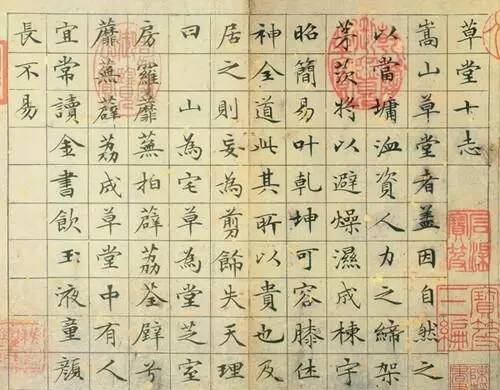 草堂十志
嵩山草堂者蓋因自然之
以當墉洫資人力之締架
茅茨将以避燥濕成棟宇
昭簡易叶乾坤可容膝休
神全道此其所以貴也及
居之則妄為剪飾失天理
曰 山為宅草為堂芝室
房羅蘼蕪拍薜荔荃壁兮
蘼蕪薜荔成草堂中有人
宜常讀金書飲玉液童顏
長不易